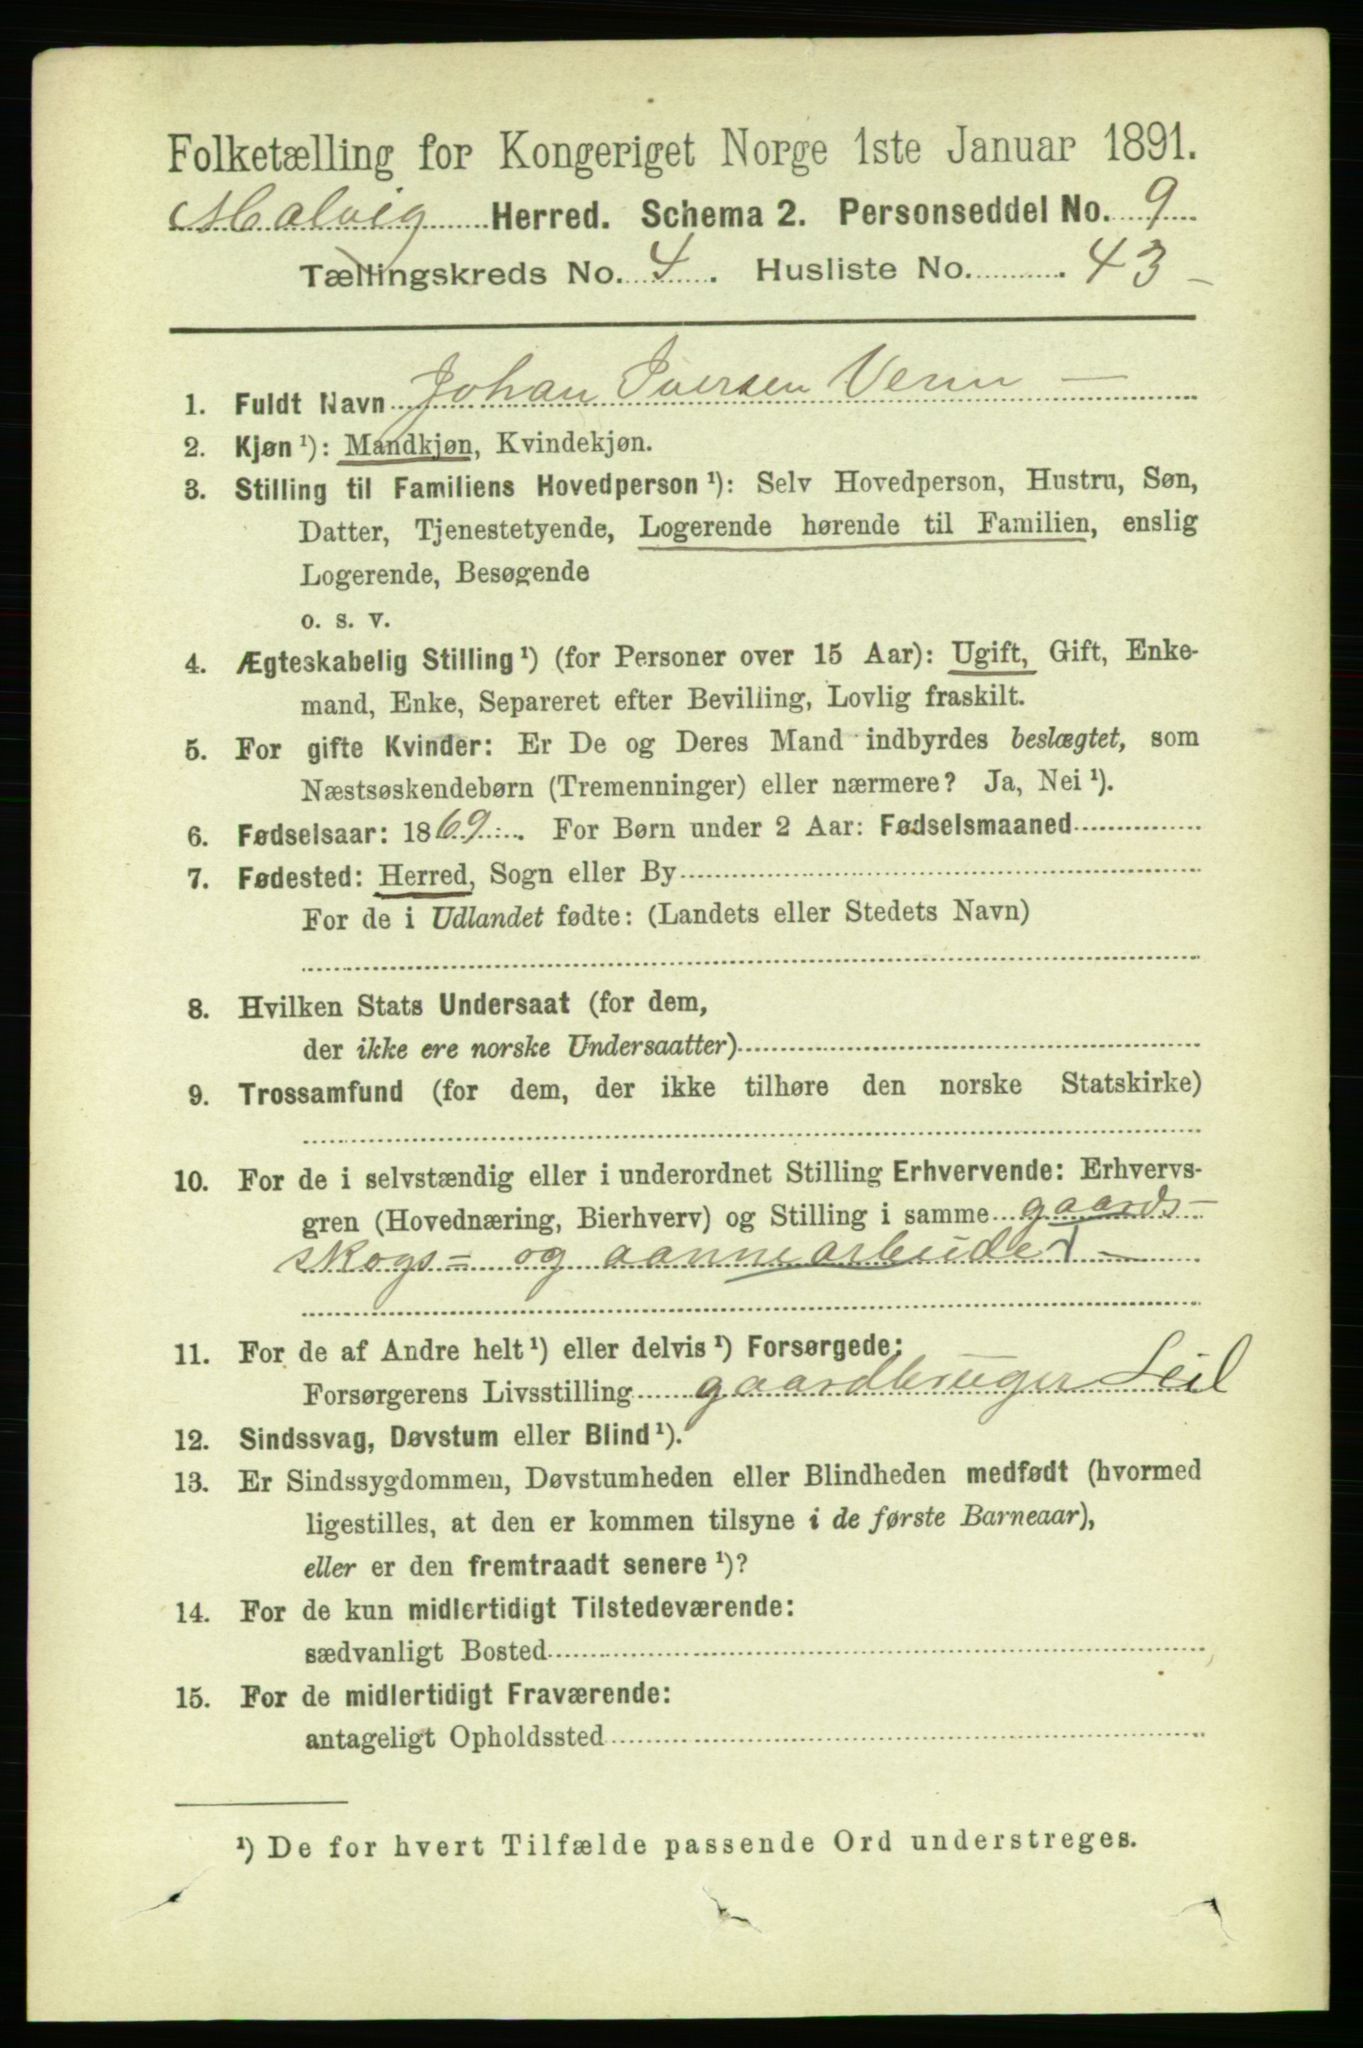 Folketælling for Kongeriget Norge 1ste Januar 1891.
Malvig Herred. Schema 2. Personseddel No. 9
Tællingskreds No. 4. Husliste No. 43
1. Fuldt Navn Johan Iversen Venn
2. Kjøn ¹): Mandkjøn, Kvindekjøn.
3. Stilling til Familiens Hovedperson ¹): Selv Hovedperson, Hustru, Søn,
Datter, Tjenestetyende, Logerende hørende til Familien, enslig
Logerende, Besøgende
o. s. v.
4. Ægteskabelig Stilling ¹) (for Personer over 15 Aar): Ugift, Gift, Enke-
mand, Enke, Separeret efter Bevilling, Lovlig fraskilt.
5. For gifte Kvinder: Er De og Deres Mand indbyrdes beslægtet, som
Næstsøskendebørn (Tremenninger) eller nærmere? Ja, Nei ¹).
6. Fødselsaar: 1869. For Børn under 2 Aar: Fødselsmaaned
7. Fødested: Herred, Sogn eller By
For de i Udlandet fødte: (Landets eller Stedets Navn)
8. Hvilken Stats Undersaat (for dem,
der ikke ere norske Undersaatter)
9. Trossamfund (for dem, der ikke tilhøre den norske Statskirke)
10. For de i selvstændig eller i underordnet Stilling Erhvervende: Erhvervs-
gren (Hovednæring, Bierhverv) og Stilling i samme gaards-
skogs- og aannearbeider
11. For de af Andre helt ¹) eller delvis ¹) Forsørgede:
Forsørgerens Livsstilling gaardbruger Leil
12. Sindssvag, Døvstum eller Blind ¹).
13. Er Sindssygdommen, Døvstumheden eller Blindheden medfødt (hvormed
ligestilles, at den er kommen tilsyne i de første Barneaar),
eller er den fremtraadt senere ¹)?
14. For de kun midlertidigt Tilstedeværende:
sædvanligt Bosted
15. For de midlertidigt Fraværende:
antageligt Opholdssted
¹) De for hvert Tilfælde passende Ord understreges.